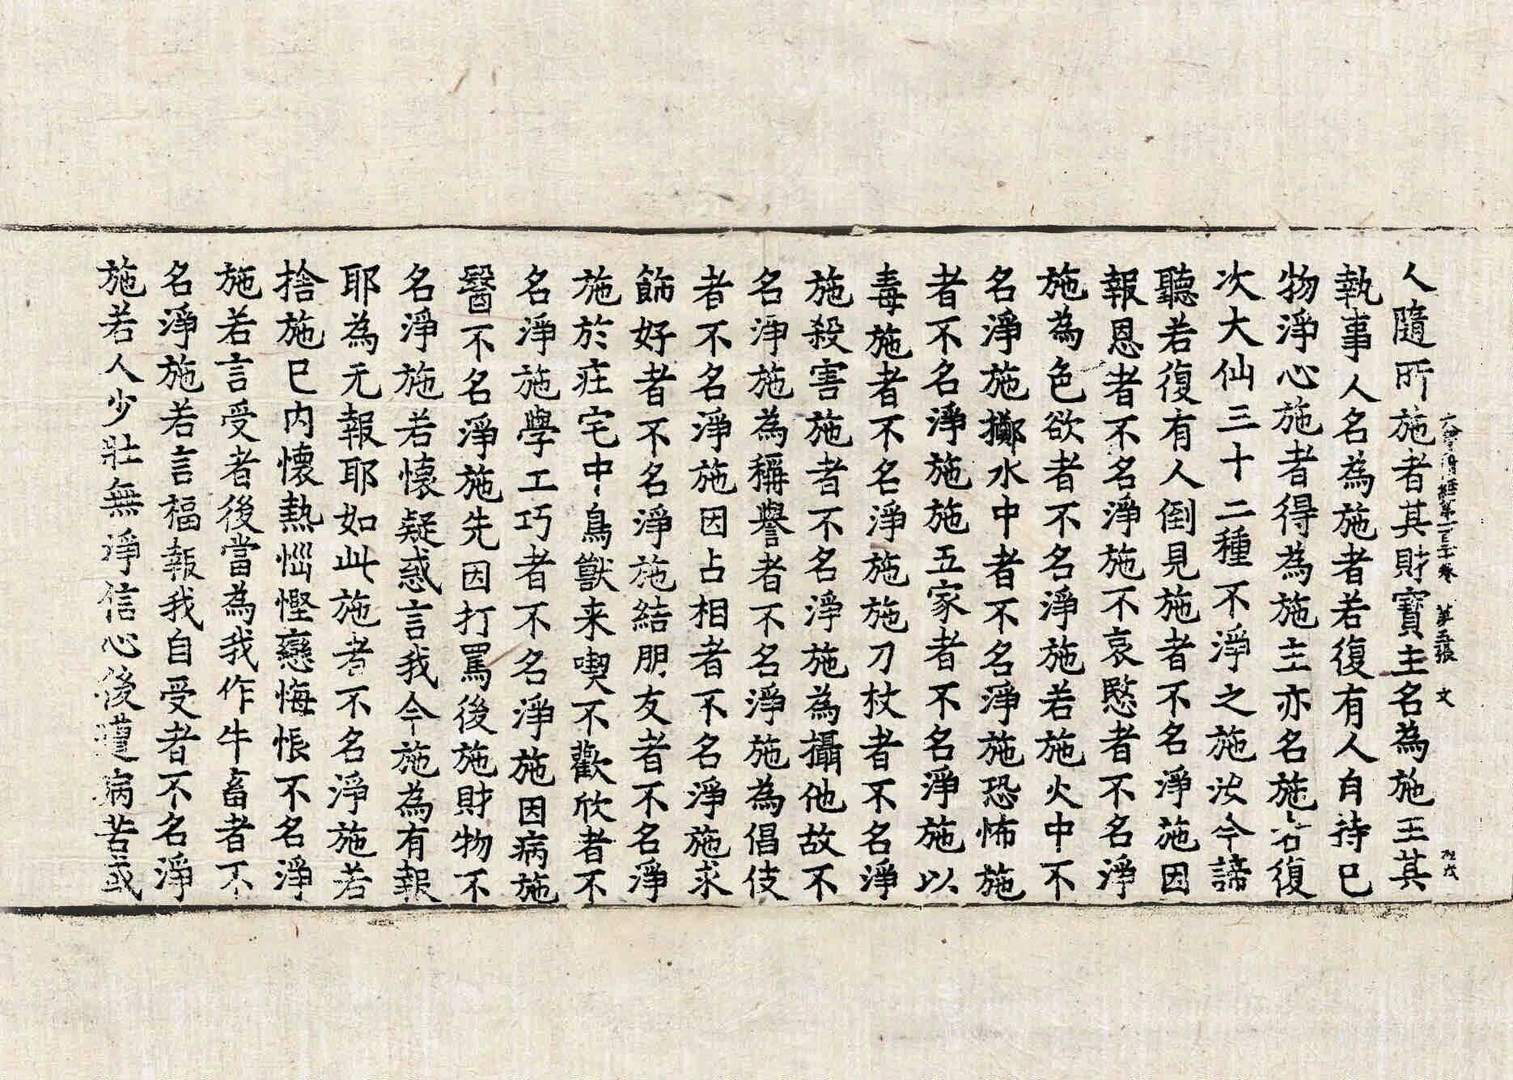 人隨所施者其財寶主名為施主其
執事人名為施者若復有人自持己
物淨心施者得為施主亦名施者復
次大仙三十二種不淨之施汝今諦
聽若復有人倒見施者不名淨施因
報恩者不名淨施不哀愍者不名淨
施為色欲者不名淨施若施火中不
名淨施擲水中者不名淨施恐怖施
者不名淨施施五家者不名淨施以
毒施者不名淨施施刀杖者不名淨
施殺害施者不名淨施為攝他故不
名淨施為稱譽者不名淨施為倡伎
者不名淨施因占相者不名淨施求
飾好者不名淨施結朋友者不名淨
施於庄宅中鳥獸来喫不歡欣者不
名淨施學工巧者不名淨施因病施
醫不名淨施先因打罵後施財物不
名淨施若懷疑惑言我今施為有報
耶為无報耶如此施者不名淨施若
捨施已內懷熱惱慳戀悔悵不名淨
施若言受者後當為我作牛畜者不
名淨施若言福報我自受者不名淨
施若人少壯無淨信心後遭病苦或